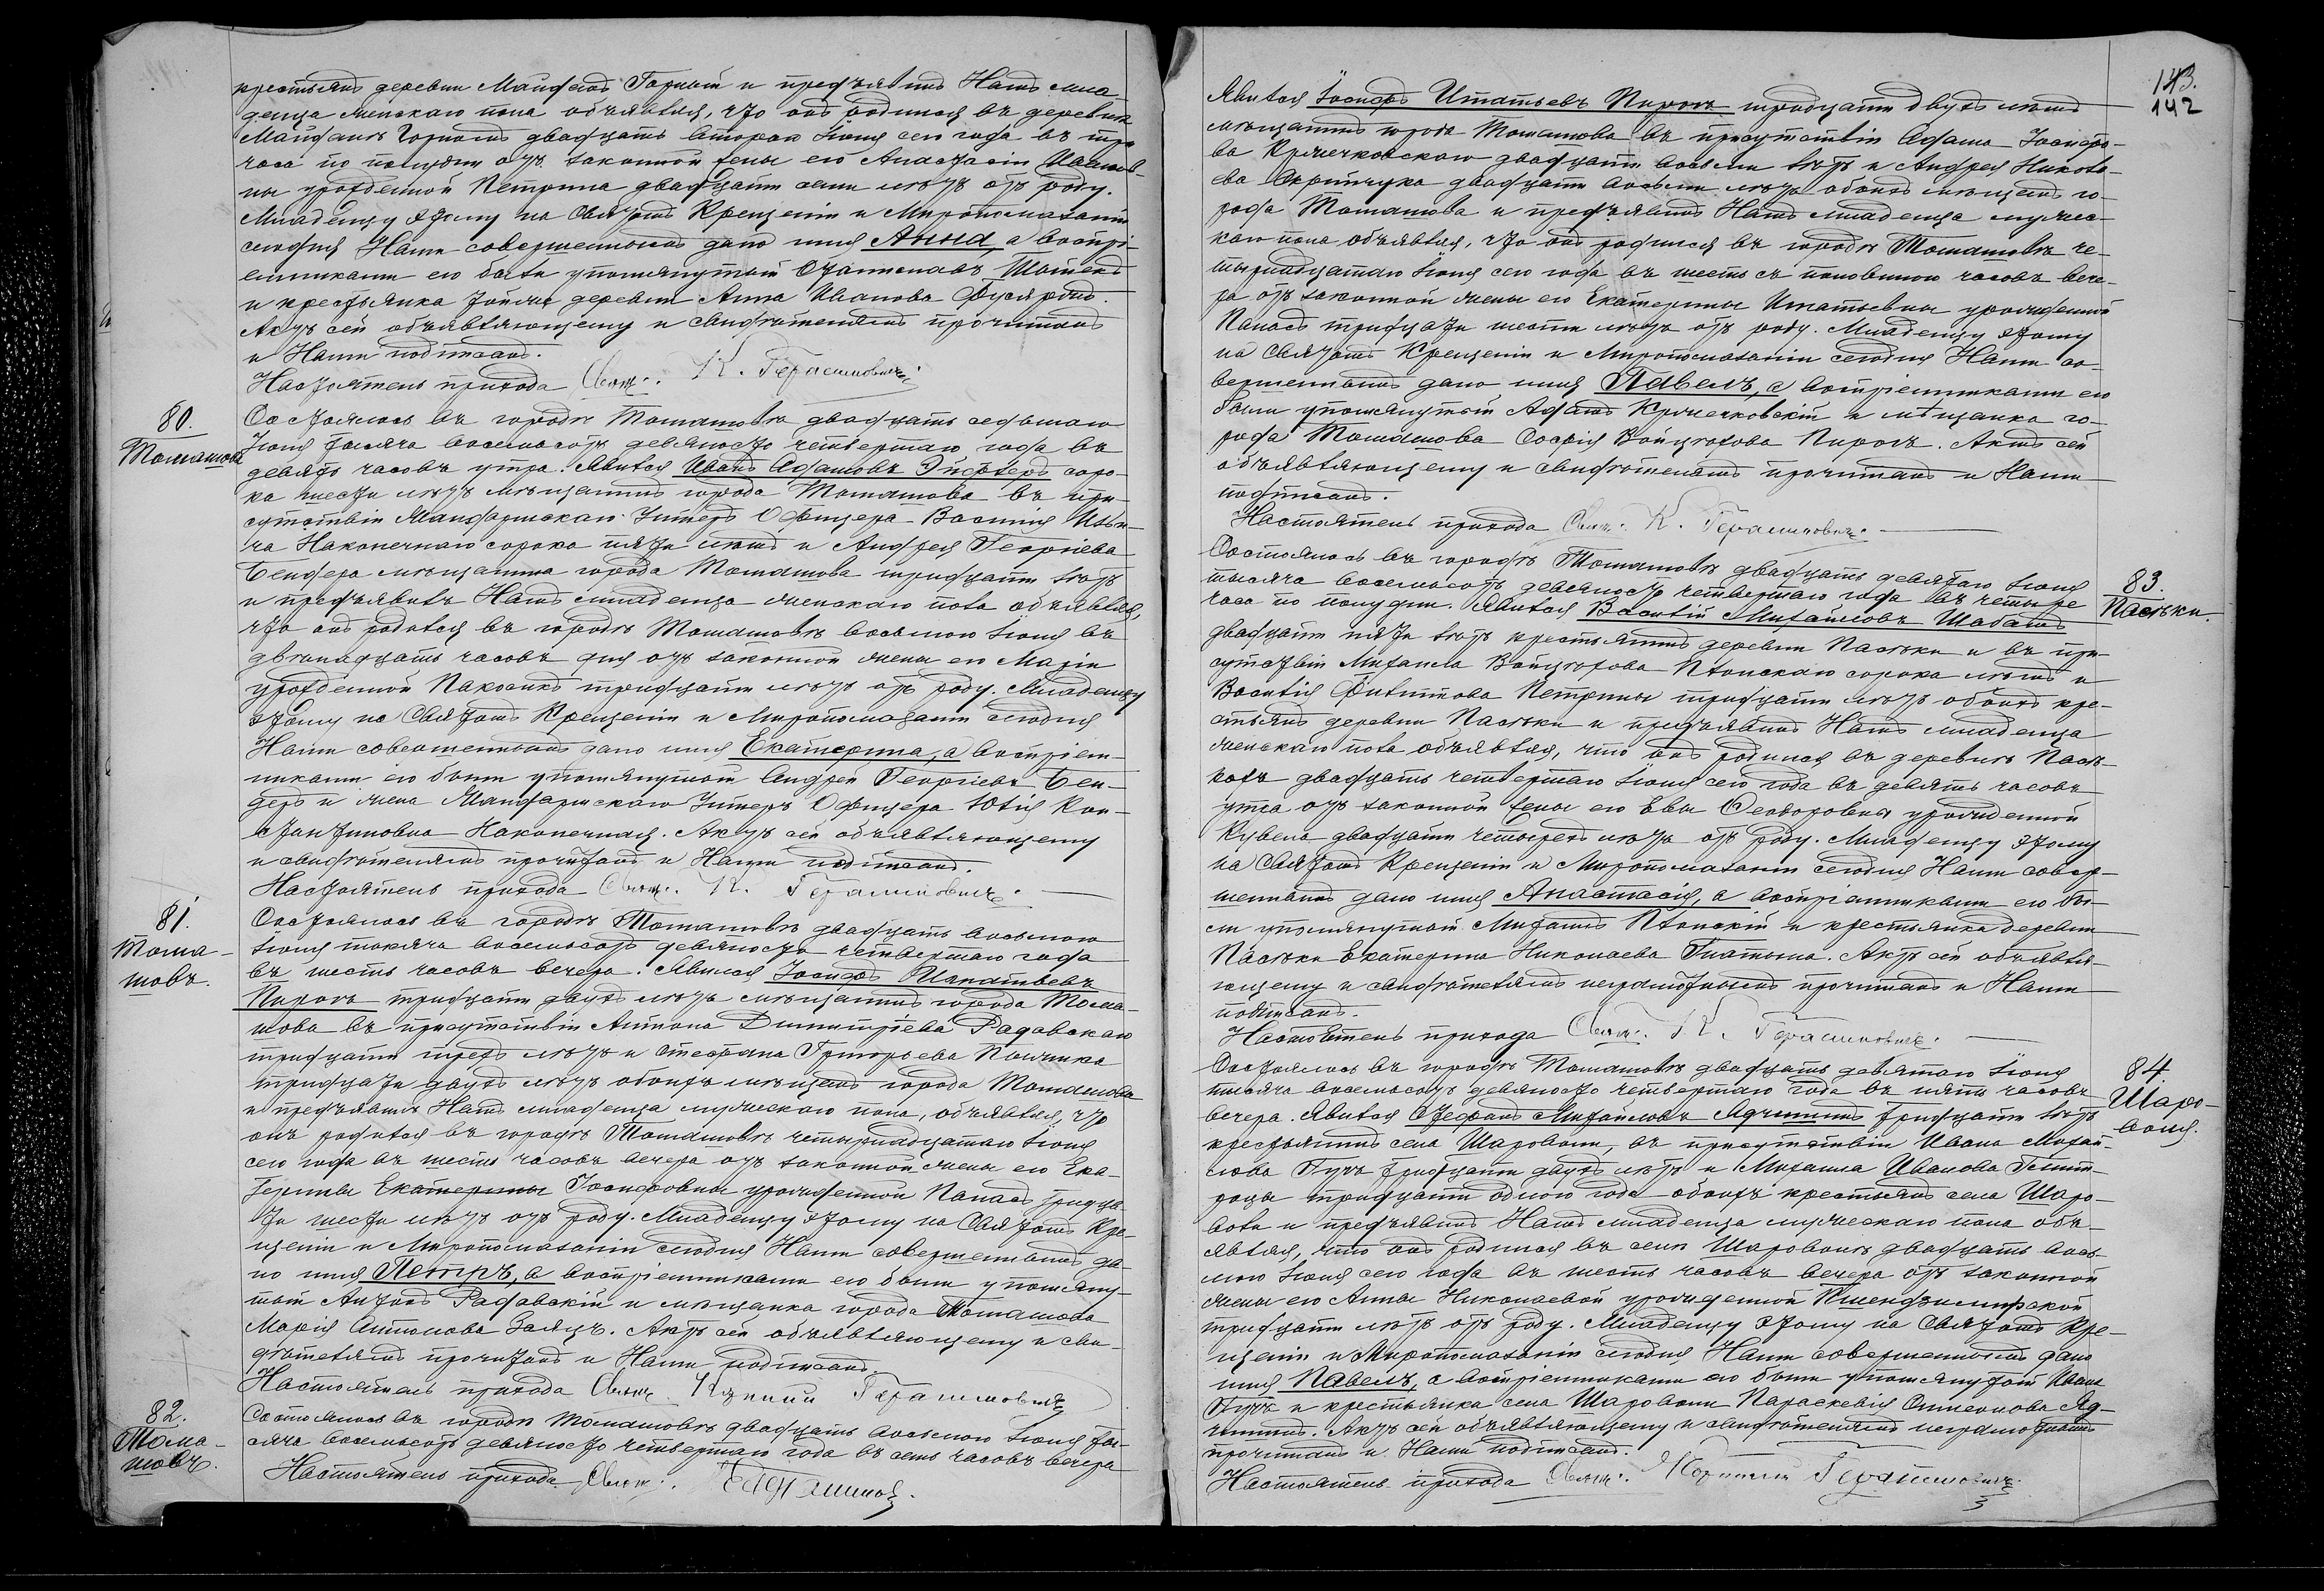 крестьянъ деревни Майданъ Горный и предъявилъ Намъ мла-
денца женскаго пола объявляя, что онъ родился въ деревнѣ
Майданъ Горномъ двадцать втораго Іюня сего года въ три
часа по полудни отъ законной жены его Анастасіи
ны урожденной Петрина двадцати семи лѣтъ отъ роду.
Младенцу этому на Святомъ Крещеніи и Миропомазаніи
сегодня Нами совершенномъ дано имя Анна, а воспрі-
емниками его были упомянутый
и крестьянка той же деревни Анна Иванова
Актъ сей объявляющему и свидѣтелямъ прочитанъ
и Нами подписанъ.
Настоятель прихода Свящ. К. Герасимовичъ
80.
Томашовъ
Состоялось въ городѣ Томашовѣ двадцать седьмаго
Іюня тысяча восемьсотъ девяносто четвертаго года въ
девять часовъ утра. Явился Иванъ Адамовъ соро-
ка шести лѣтъ мѣщанинъ города Томашова въ при-
сутствіи Жандармскаго Унтеръ Офицера Василія Ильи-
ча Наконечнаго сорока пяти лѣтъ и Андрея Георгіева
Бендера мѣщанина города Томашова тридцати лѣтъ
и предъявилъ Намъ младенца женскаго пола объявляя,
что онъ родился въ городѣ Томашовѣ восьмого Іюня въ
двѣнадцать часовъ дня отъ законной жены его Маріи
урожденной тридцати лѣтъ отъ роду. Младенцу
этому на Святомъ Крещеніи и Миропомазаніи сегодня
Нами совершенномъ дано имя Екатерина, а воспріем-
никами его были упомянутый Андрей Георгіевъ Бен-
деръ и жена Жандармскаго Унтеръ Офицера Юлія Кон-
стантиновна Наконечная. Актъ сей объявляющему
и свидѣтелямъ прочитанъ и Нами подписанъ.
Настоятель прихода Свящ. К. Герасимовичъ.
81.
Тома-
шовъ.
Состоялось въ городѣ Томашовѣ двадцать восьмого
Іюня тысяча восемьсотъ девяносто четвертаго года
въ шесть часовъ вечера. Явился Іосифъ Игнатьевъ
Пирогъ тридцати двухъ лѣтъ мѣщанинъ города Тома-
шова въ присутствіи Антона Димитріева Радавскаго
тридцати трехъ лѣтъ и Стефана Григорьева
тридцати двухъ лѣтъ обоихъ мѣщанъ города Томашова
и предъявилъ Намъ младенца мужескаго пола, объявляя, что
онъ родился въ городѣ Томашовѣ четырнадцатаго Іюня
сего года въ шесть часовъ вечера отъ законной жены его Ека-
терины Екатерины Іосифовны урожденной Панасъ тридца-
ти шести лѣтъ отъ роду. Младенцу этому на Святомъ Кре-
щеніи и Миропомазаніи сегодня Нами совершенномъ да-
но имя Петръ, а воспріемниками его были упомяну-
тый Антонъ Радавскій и мѣщанка города Томашова
Марія Антонова Заяцъ. Актъ сей объявляющему и сви-
дѣтелямъ прочитанъ и Нами подписанъ.
Настоятель прихода Свящ. Герасимовичъ
82.
Тома-
шовъ.
Состоялось въ городѣ Томашовѣ двадцать восьмого Іюня ты-
сяча восемьсотъ девяносто четвертаго года въ семь часовъ вечера
Настоятель прихода Свящ.
143.
142
Явился Іосифъ Игнатьевъ Пирогъ тридцати двухъ лѣтъ
мѣщанинъ города Томашова въ присутствіи Адама Іосифо-
ва двадцати восьми лѣтъ и Андрея Николае-
ва двадцати восьми лѣтъ обоихъ мѣщанъ го-
рода Томашова и предъявилъ Намъ младенца мужес-
каго пола объявляя, что онъ родился въ городѣ Томашовѣ че-
тырнадцатаго Іюня сего года въ шесть съ половиною часовъ вече-
ра отъ законной жены его Екатерины Игнатьевны урожденной
Панасъ тридцати шести лѣтъ отъ роду. Младенцу этому
на Святомъ Крещеніи и Миропомазаніи сегодня Нами со-
вершенномъ дано имя Павелъ, а воспріемниками его
были упомянутый Адамъ и мѣщанка го-
рода Томашова Софія Войцѣхова Пирогъ. Актъ сей
объявляющему и свидѣтелямъ прочитанъ и Нами
подписанъ.
Настоятель прихода Свящ. К. Герасимовичъ.
83.
Пасѣки.
Состоялось въ городѣ Томашовѣ двадцать девятаго Іюня
тысяча восемьсотъ девяносто четвертаго года въ четыре
часа по полудни. Явился Василій Михайловъ Шабанъ
двадцати пяти лѣтъ крестьянинъ деревни Пасѣки и въ при-
сутствіи Михаила Войцѣхова сорока лѣтъ и
Василія Филиппова Петрины тридцати лѣтъ обоихъ кре-
стьянъ деревни Пасѣки и предъявилъ Намъ младенца
женскаго пола объявляя, что онъ родился въ деревнѣ Пасѣ-
кахъ двадцать четвертаго Іюня сего года въ девять часовъ
утра отъ законной жены его Евы Ѳеодоровны урожденной
двадцати четырехъ лѣтъ отъ роду. Младенцу этому
на Святомъ Крещеніи и Миропомазаніи сегодня Нами совер-
шенномъ дано имя Анастасія, а воспріемниками его бы-
ли упомянутый Михаилъ и крестьянка деревни
Пасѣки Екатерина Николаева Гнатына. Актъ сей объявля-
ющему и свидѣтелямъ неграмотнымъ прочитанъ и Нами
подписанъ.
Настоятель прихода Свящ. К. Герасимовичъ.
84.
Шаро-
воля.
Состоялось въ городѣ Томашовѣ двадцать девятаго Іюня
тысяча восемьсотъ девяносто четвертаго года въ пять часовъ
вечера. Явился Стефанъ Михайловъ тридцати лѣтъ
крестьянинъ села Шароволи, въ присутствіи Ивана Михай-
лова Гукъ тридцати двухъ лѣтъ и Михаила Иванова
тридцати одного года обоихъ крестьянъ села Шаро-
воля и предъявилъ Намъ младенца мужескаго пола объ-
являя, что онъ родился въ селѣ Шароволѣ двадцать вось-
мого Іюня сего года въ шесть часовъ вечера отъ законной
жены его Анны Николаевой урожденной
тридцати лѣтъ отъ роду. Младенцу этому на Святомъ Кре-
щеніи и Миропомазаніи сегодня Нами совершенномъ дано
имя Павелъ, а воспріемниками его были упомянутый Иванъ
Гукъ и крестьянка села Шароволи Параскевія
Актъ сей объявляющему и свидѣтелямъ неграмотнымъ
прочитанъ и Нами подписанъ.
Настоятель прихода Свящ. Герасимовичъ.